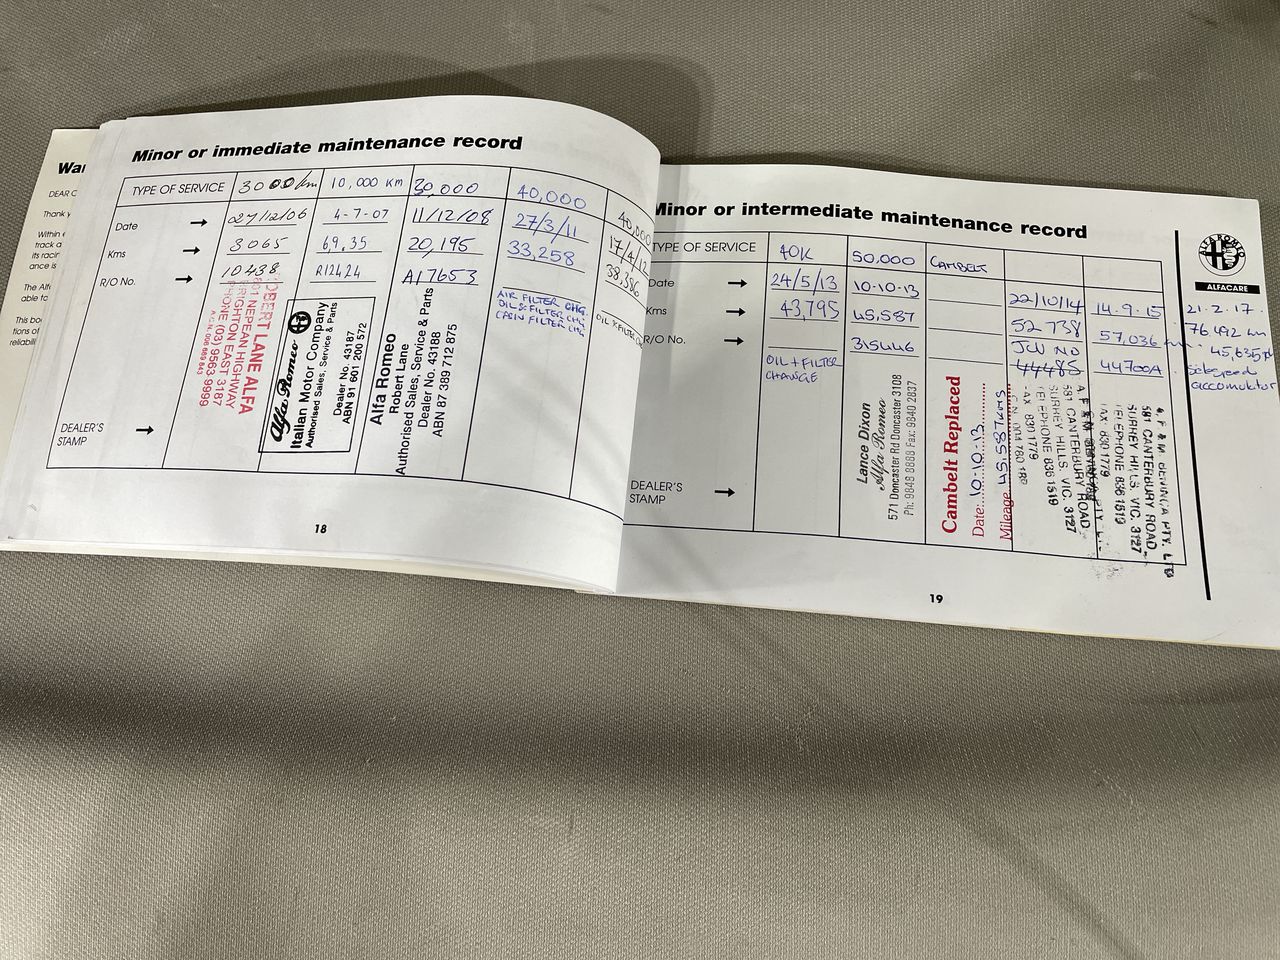 Wa
DEAR C
Thank y
Within
track a
its racin
ance is
The Alf
able to
This bo
tions of
reliabili
Minor or immediate maintenance record
TYPE OF SERVICE 3000 km 10,000 KM 30,000 40,000 40,000
Date → 27/12/06 4-7-07 11/12/08 27/3/11 17/4/12
Kms → 3065 69,35 20,195 33,258 38,386
R/O No. → 10438 R12424 A17653
AIR FILTER CHG.
OIL & FILTER CHG
CABIN FILTER CHG
OIL & FILTER
DEALER'S
STAMP →
OBERT LANE ALFA
801 NEPEAN HIGHWAY
BRIGHTON EAST 3187
PHONE (03) 9563 9999
Alfa Romeo
Italian Motor Company
Authorised Sales, Service & Parts
Dealer No. 43187
ABN 91 601 200 572
Alfa Romeo
Robert Lane
Authorised Sales, Service & Parts
Dealer No. 43188
ABN 87 389 712 875
18
Minor or intermediate maintenance record
TYPE OF SERVICE 40K 50.000 CAMBELT
Date → 24/5/13 10-10-13 22/10/14 14-9-15 21-2-17
Kms → 43,795 45,587 52738 57,036 km 76,492 km
R/O No. → 315446 JCW NO 44485 44700A
OIL + FILTER
CHANGE
selespeed
DEALER'S
STAMP →
Lance Dixon
Alfa Romeo
571 Doncaster Rd Doncaster 3108
Ph: 9848 8888 Fax: 9840 2837
Cambelt Replaced
Date: 10-10-13
Mileage 45,587 KMS
581 CANTERBURY ROAD
SURREY HILLS, VIC. 3127
TELEPHONE 836 1519
FAX 830 1779
581 CANTERBURY ROAD
SURREY HILLS, VIC. 3127
TELEPHONE 836 1519
FAX: 830 1779
19
ALFA ROMEO
ALFACARE